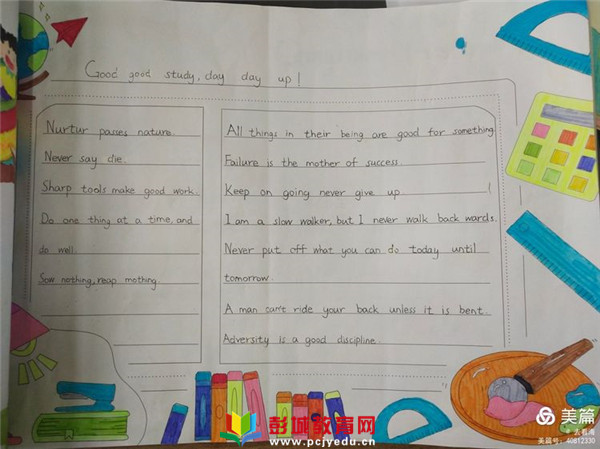 Good good study, day day up!
Nurtur passes nature.
Never say die.
Sharp tools make good work.
Do one thing at a time, and
do well.
Sow nothing, reap mothing.
All things in their being are good for something.
Failure is the mother of success.
Keep on going never give up
I am a slow walker, but I never walk back wards.
Never put off what you can do today until
tomorrow.
A man can't ride your back unless it is bent.
Adversity is a good discipline.
彭城教育网
www.pcjyedu.cn
美篇
美篇号: 40612330